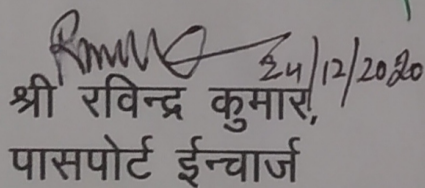 24/12/2020
श्री रविन्द्र कुमार,
पासपोर्ट ईन्चार्ज